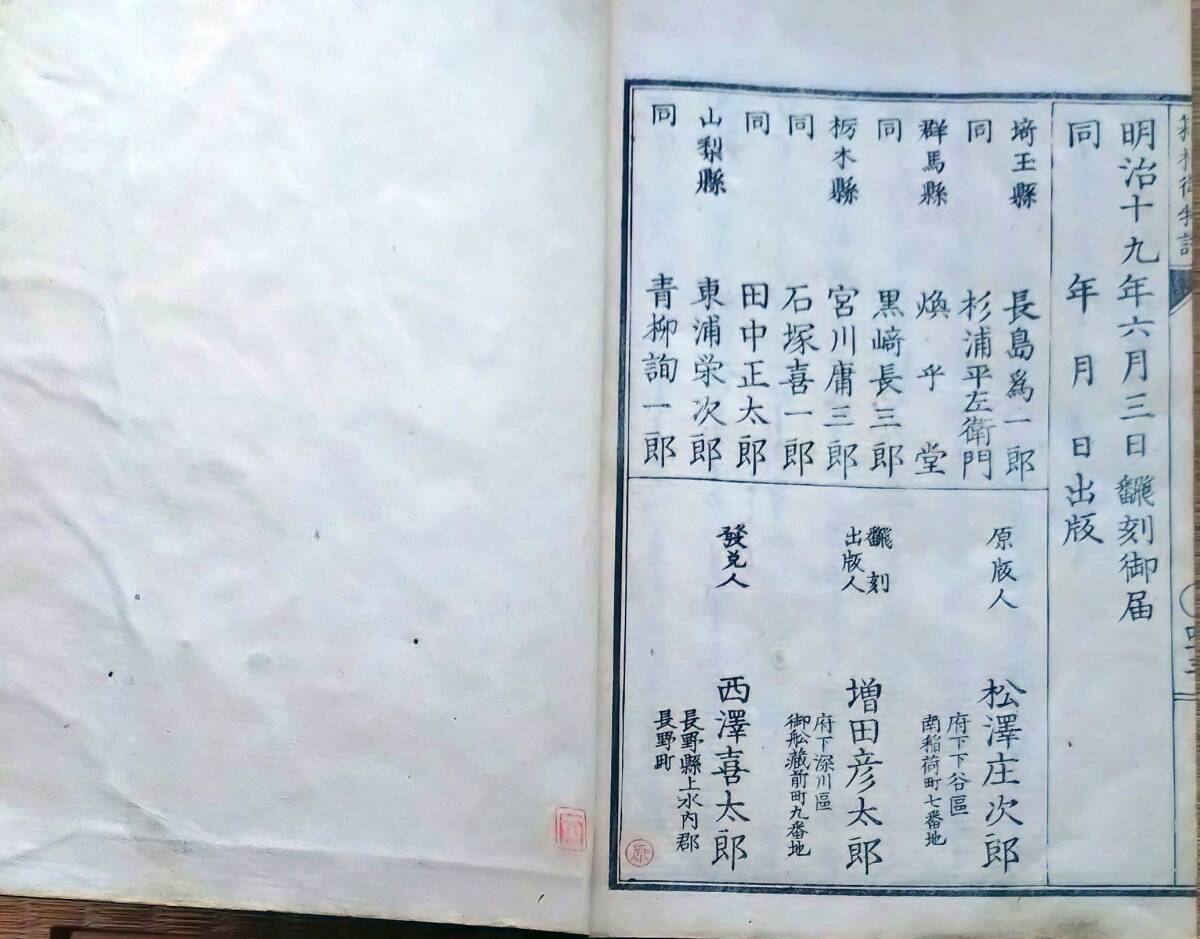 明治十九年六月三日飜刻御届
同年月日出版
埼玉縣 長島爲一郎
同 杉浦平左衛門
群馬縣 煥乎堂
同 黒﨑長三郎
栃木縣 宮川庸三郎
同 石塚喜一郎
同 田中正太郎
山梨縣 東浦栄次郎
同 青柳詢一郎
原版人
府下下谷區
南稲荷町七番地
松澤庄次郎
飜刻
出版人
府下深川區
御舩蔵前町九番地
増田彦太郎
發兑人
長野縣上水内郡
長野町
西澤喜太郎
原